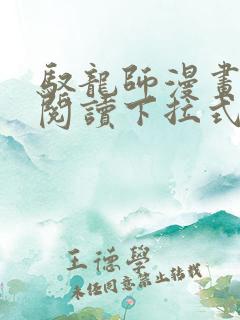 馭龍師漫畫
閱讀下拉式
王德學
未經同意禁止轉載